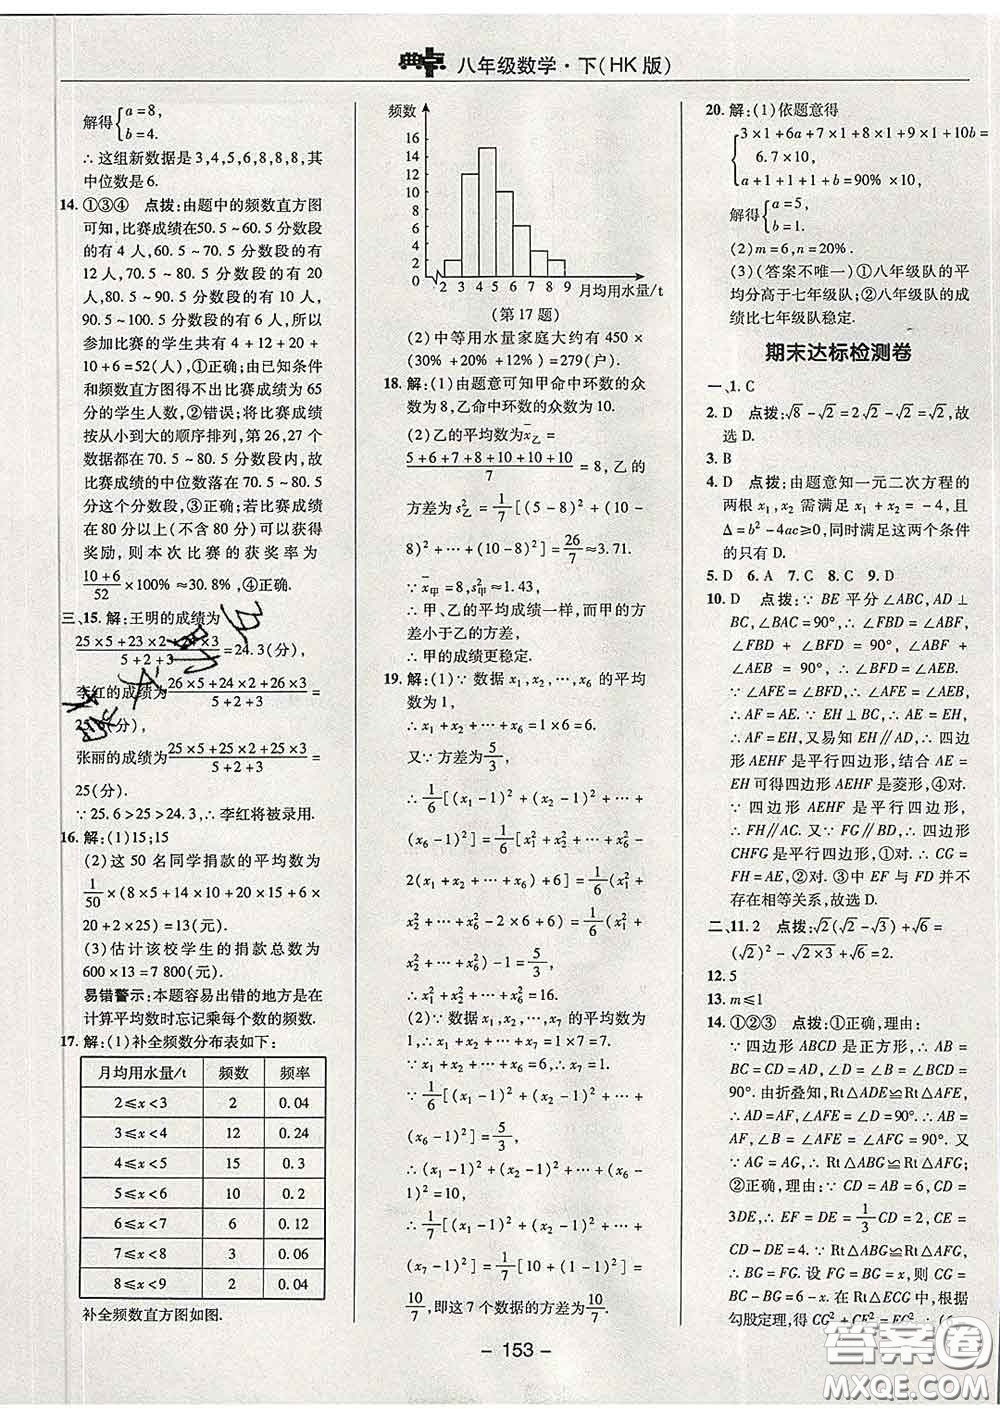 典点 八年级数学·下(HK版)
解得{a=8, b=4.
∴这组新数据是3,4,5,6,8,8,8,其
中位数是6.
14.①③④ 点拨:由题中的频数直方图
可知,比赛成绩在50.5~60.5分数段
的有4人,60.5~70.5分数段的有
12人,70.5~80.5分数段的有20
人,80.5~90.5分数段的有10人,
90.5~100.5分数段的有6人,所以
参加比赛的学生共有4+12+20+
10+6=52(人),①正确;由已知条件
和频数直方图得不出比赛成绩为65
分的学生人数,②错误;将比赛成绩
按从小到大的顺序排列,第26,27个
数据都在70.5~80.5分数段中,故
比赛成绩的中位数落在70.5~80.5
这个分数段,③正确;若比赛成绩
在80分以上(不含80分)可以获得
奖励,则本次比赛的获奖率为
(10+6)/52×100%≈30.8%,④正确.
三、15.解:王明的成绩为
(25×5+23×2+24×3)/(5+2+3)=24.3(分),
李红的成绩为(26×5+24×2+26×3)/(5+2+3)=
25.6(分),
张丽的成绩为(25×5+25×2+25×3)/(5+2+3)=
25(分).
∵25.6>25>24.3,∴李红将被录用.
16.解:(1)15;15
(2)这50名同学捐款的平均数为
1/50×(8×5+14×10+20×15+6×
20+2×25)=13(元).
(3)估计该校学生的捐款总数为
600×13=7 800(元).
易错警示:本题容易出错的地方是在
计算平均数时忘记乘每个数的频数.
17.解:(1)补全频数分布表如下:
月均用水量/t 频数 频率
2≤x<3 2 0.04
3≤x<4 12 0.24
4≤x<5 15 0.3
5≤x<6 10 0.2
6≤x<7 6 0.12
7≤x<8 3 0.06
8≤x<9 2 0.04
补全频数直方图如图.
频数
16
14
12
10
8
6
4
2
0 2 3 4 5 6 7 8 9 月均用水量/t
(第17题)
(2)中等用水量家庭大约有450×
(30%+20%+12%)=279(户).
18.解:(1)由题意可知甲命中环数的众
数为8,乙命中环数的众数为10.
(2)乙的平均数为x̄乙=
(5+6+7+8+10+10+10)/7=8,乙的
方差为s²乙=1/7[(5-8)²+(10-
8)²+…+(10-8)²]=26/7≈3.71.
∵x̄甲=8,s²甲≈1.43,
∴甲、乙的平均成绩一样,而甲的方
差小于乙的方差,
∴甲的成绩更稳定.
19.解:(1)∵数据x₁,x₂,…,x₆的平均
数为1,
∴x₁+x₂+…+x₆=1×6=6.
又∵方差为5/3,
∴1/6[(x₁-1)²+(x₂-1)²+…+
(x₆-1)²]=1/6[x₁²+x₂²+…+x₆²-
2(x₁+x₂+…+x₆)+6]=1/6(x₁²+
x₂²+…+x₆²-2×6+6)=1/6(x₁²+
x₂²+…+x₆²)-1=5/3,
∴x₁²+x₂²+…+x₆²=16.
(2)∵数据x₁,x₂,…,x₇的平均数为
1,∴x₁+x₂+…+x₇=1×7=7.
∵x₁+x₂+…+x₆=6,∴x₇=1.
∵1/6[(x₁-1)²+(x₂-1)²+…+
(x₆-1)²]=5/3,
∴(x₁-1)²+(x₂-1)²+…+(x₆-
1)²=10,
∴1/7[(x₁-1)²+(x₂-1)²+…+
(x₇-1)²]=1/7[10+(1-1)²]=
10/7,即这7个数据的方差为10/7.
20.解:(1)依题意得
{3×1+6a+7×1+8×1+9×1+10b=
6.7×10,
a+1+1+1+b=90%×10,
解得{a=5, b=1.
(2)m=6,n=20%.
(3)(答案不唯一)①八年级队的平
均分高于七年级队;②八年级队的成
绩比七年级队稳定.
期末达标检测卷
一、1.C
2.D 点拨:√8-√2=2√2-√2=√2,故
选D.
3.B
4.D 点拨:由题意知一元二次方程的
两根x₁,x₂需满足x₁+x₂=-4,且
Δ=b²-4ac≥0,同时满足这两个条件
的只有D.
5.D 6.A 7.C 8.C 9.D
10.D 点拨:∵BE平分∠ABC,AD⊥
BC,∠BAC=90°,∴∠FBD=∠ABF,
∠FBD+∠BFD=90°,∠ABF+
∠AEB=90°,∴∠BFD=∠AEB.
∵∠AFE=∠BFD,∴∠AFE=∠AEF,
∴AF=AE.∵EH⊥BC,∴AE=EH,
∴AF=EH,又易知EH∥AD,∴四边
形AEHF是平行四边形,结合AE=
EH可得四边形AEHF是菱形,④对.
∵四边形AEHF是平行四边形,
∴FH∥AC.又∵FG∥BD,∴四边形
CHFG是平行四边形,①对.∴CG=
FH=AE,②对.③中EF与FD并不
存在相等关系,故选D.
二、11.2 点拨:√2(√2-√3)+√6=
(√2)²-√(2×3)+√6=2.
12.5
13.m≤1
14.①②③ 点拨:①正确,理由:
∵四边形ABCD是正方形,∴AB=
BC=CD=AD,∠D=∠B=∠BCD=
90°.由折叠知,Rt△ADE≌Rt△AFE,
∴AD=AF,∠AFE=∠D=90°.∴AB=
AF,∠B=∠AFE=∠AFG=90°.又
∵AG=AG,∴Rt△ABG≌Rt△AFG;
②正确,理由:∵CD=AB=6,CD=
3DE,∴EF=DE=1/3CD=2,CE=
CD-DE=4.∵Rt△ABG≌Rt△AFG,
∴BG=FG.设FG=BG=x,则CG=
BC-BG=6-x.在Rt△ECG中,根据
勾股定理,得CG²+CE²=EG²,
- 153 -
答案圈
MXQE.COM